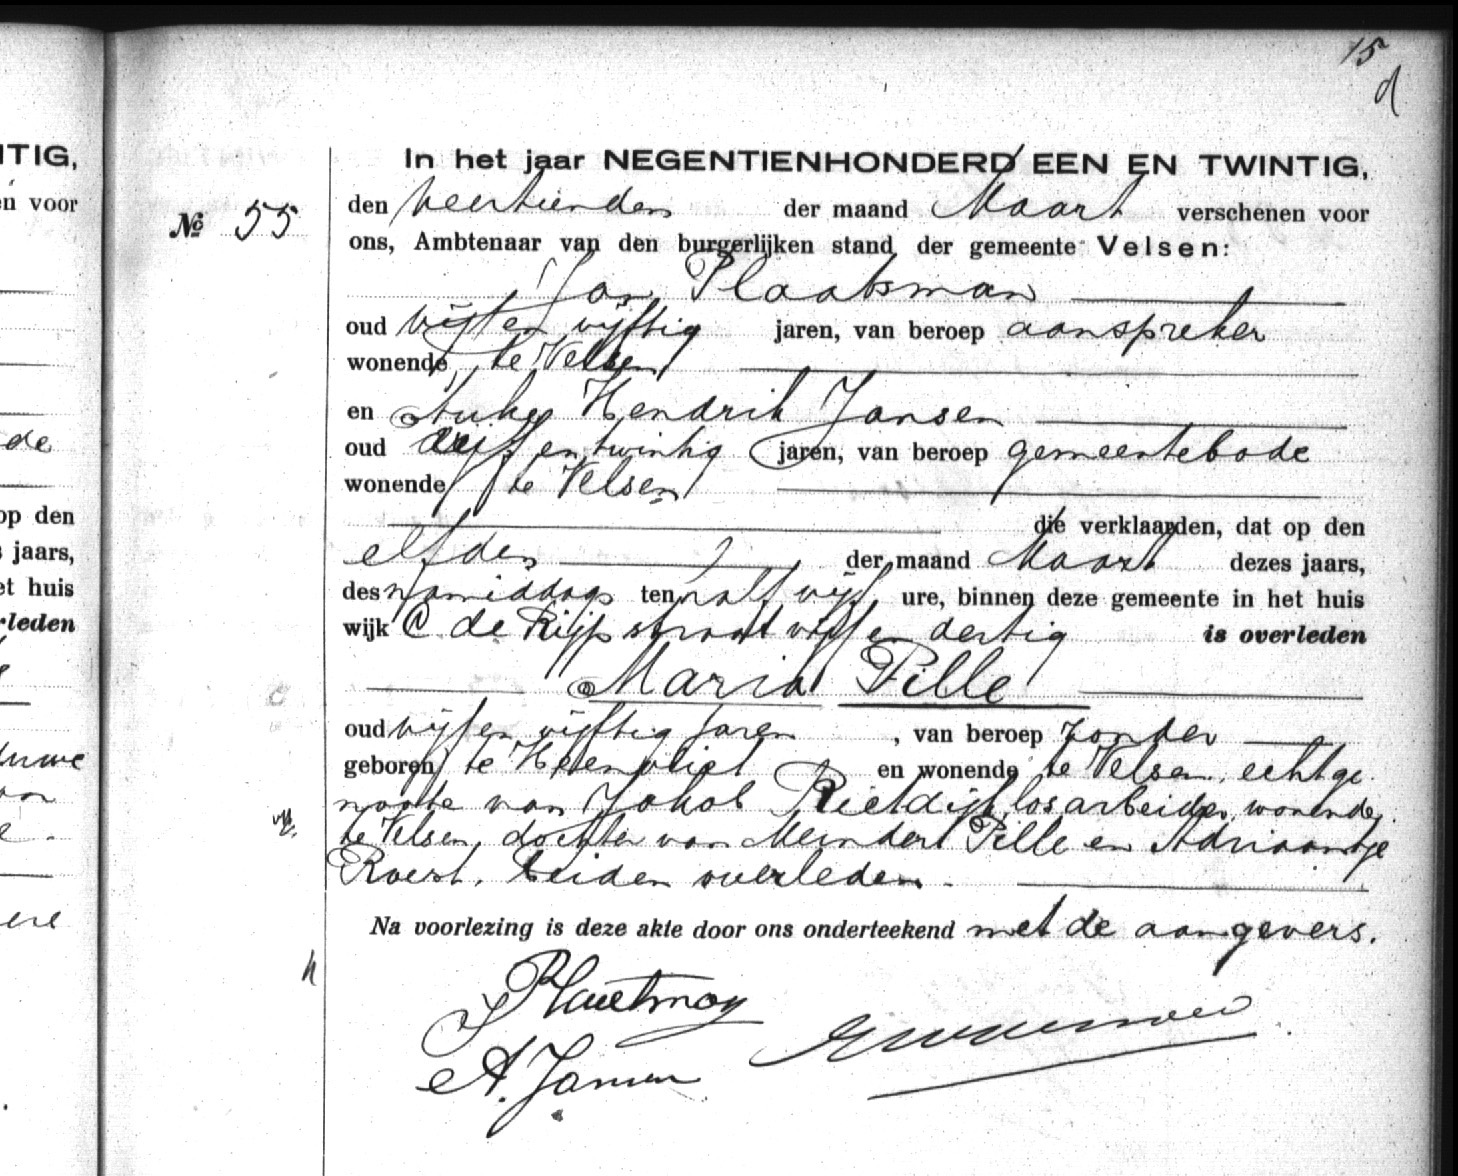 15
d
ITIG,
en voor
de
op den
s jaars,
et huis
rleden
In het jaar NEGENTIENHONDERD EEN EN TWINTIG,
№ 55
den veertienden der maand Maart verschenen voor
ons, Ambtenaar van den burgerlijken stand der gemeente Velsen:
Jan Plaatsman
oud vijf en vijftig jaren, van beroep aanspreker
wonende te Velsen
en Aukes Hendrik Jansen
oud vijf en twintig jaren, van beroep gemeentebode
wonende te Velsen
die verklaarden, dat op den
elfden der maand Maart dezes jaars,
des namiddags ten half vijf ure, binnen deze gemeente in het huis
wijk C de Rijpstraat vijf en dertig is overleden
Maria Pille
oud vijf en vijftig jaren, van beroep zonder
geboren te en wonende te Velsen, echtge-
noote van Jakob Rietdijk, losarbeider, wonende
te Velsen, dochter van Meindert Pille en Adriaantje
Roest, beiden overleden.
Na voorlezing is deze akte door ons onderteekend met de aangevers.
J Plaatsman
A. Jansen